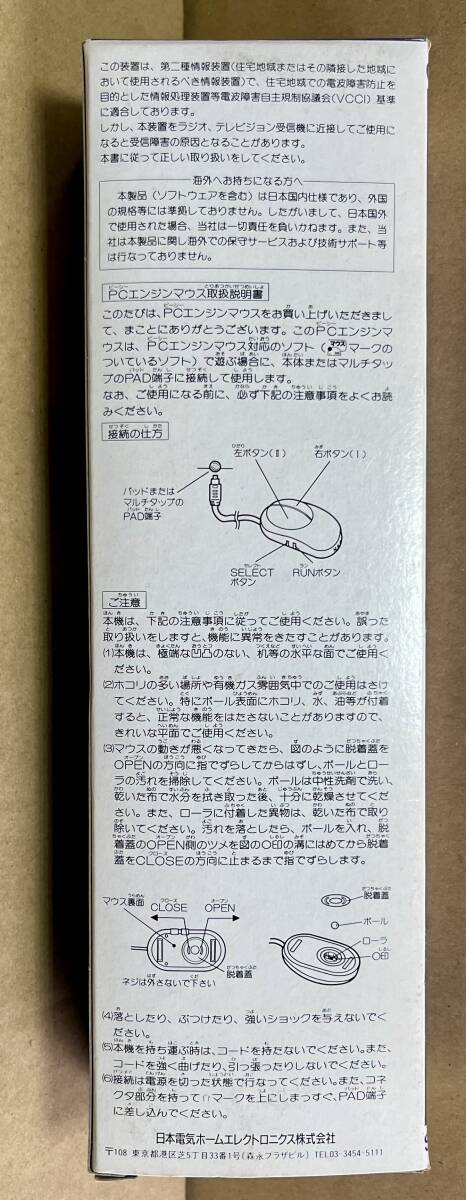 この装置は、第二種情報装置(住宅地域またはその隣接した地域に
おいて使用されるべき情報装置)で、住宅地域での電波障害防止を
目的とした情報処理装置等電波障害自主規制協議会(VCCI)基準
に適合しております。
しかし、本装置をラジオ、テレビジョン受信機に近接してご使用に
なると受信障害の原因となることがあります。
本書に従って正しい取り扱いをしてください。
海外へお持ちになる方へ
本製品(ソフトウェアを含む)は日本国内仕様であり、外国
の規格等には準拠しておりません。したがいまして、日本国外
で使用された場合、当社は一切責任を負いかねます。また、当
社は本製品に関し海外での保守サービスおよび技術サポート等
は行なっておりません。
PCエンジンマウス取扱説明書
このたびは、PCエンジンマウスをお買い上げいただきまし
て、まことにありがとうございます。このPCエンジンマ
ウスは、PCエンジンマウス対応のソフト(マウスマークの
ついているソフト)で遊ぶ場合に、本体またはマルチタッ
プのPAD端子に接続して使用します。
なお、ご使用になる前に、必ず下記の注意事項をよくお読
みください。
接続の仕方
左ボタン(II) 右ボタン(I)
パッドまたは
マルチタップの
PAD端子
SELECT
ボタン
RUNボタン
ご注意
本機は、下記の注意事項に従ってご使用ください。誤った
取り扱いをしますと、機能に異常をきたすことがあります。
(1)本機は、極端な凹凸のない、机等の水平な面でご使用く
ださい。
(2)ホコリの多い場所や有機ガス雰囲気中でのご使用はさけ
てください。特にボール表面にホコリ、水、油等が付着
すると、正常な機能をはたさないことがありますので、
きれいな平面でご使用ください。
(3)マウスの動きが悪くなってきたら、図のように脱着蓋を
OPENの方向に指でずらしてからはずし、ボールとロー
ラの汚れを掃除してください。ボールは中性洗剤で洗い、
乾いた布で水分を拭き取った後、十分に乾燥させてくだ
さい。また、ローラに付着した異物は、乾いた布で取り
除いてください。汚れを落としたら、ボールを入れ、脱
着蓋のOPEN側のツメを図の○印の溝にはめてから脱着
蓋をCLOSEの方向に止まるまで指でずらします。
マウス裏面
CLOSE OPEN
脱着蓋
ネジは外さないで下さい
脱着蓋
ボール
ローラ
○印
(4)落としたり、ぶつけたり、強いショックを与えないでく
ださい。
(5)本機を持ち運ぶ時は、コードを持たないでください。また、
コードを強く曲げたり、引っ張ったりしないでください。
(6)接続は電源を切った状態で行なってください。また、コネ
クタ部分を持って⇧マークを上にしまっすぐ、PAD端子
に差し込んでください。
日本電気ホームエレクトロニクス株式会社
〒108 東京都港区芝5丁目33番1号(森永プラザビル) TEL03-3454-5111